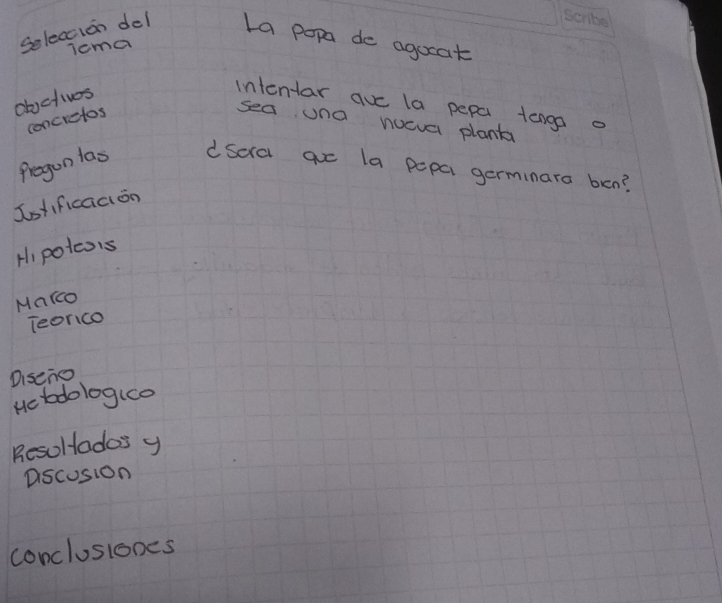 Scribe
Selección del La pepa de agucate
Tema
Objetivos intentar que la pepa tenga o
concretos sea una nueva planta
Preguntas ¿Sera que la pepa germinara bien?
Justificación
Hipotesis
Marco
Teorico
Diseño
Metodologico
Resultados y
Discusion
conclusiones